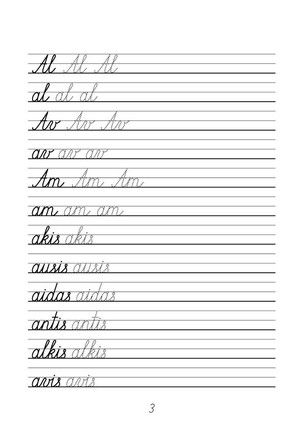 Al Al Al
al al al
Av Av Av
av av av
Am Am Am
am am am
akis akis
ausis ausis
aidas aidas
antis antis
alkis alkis
avis avis
3